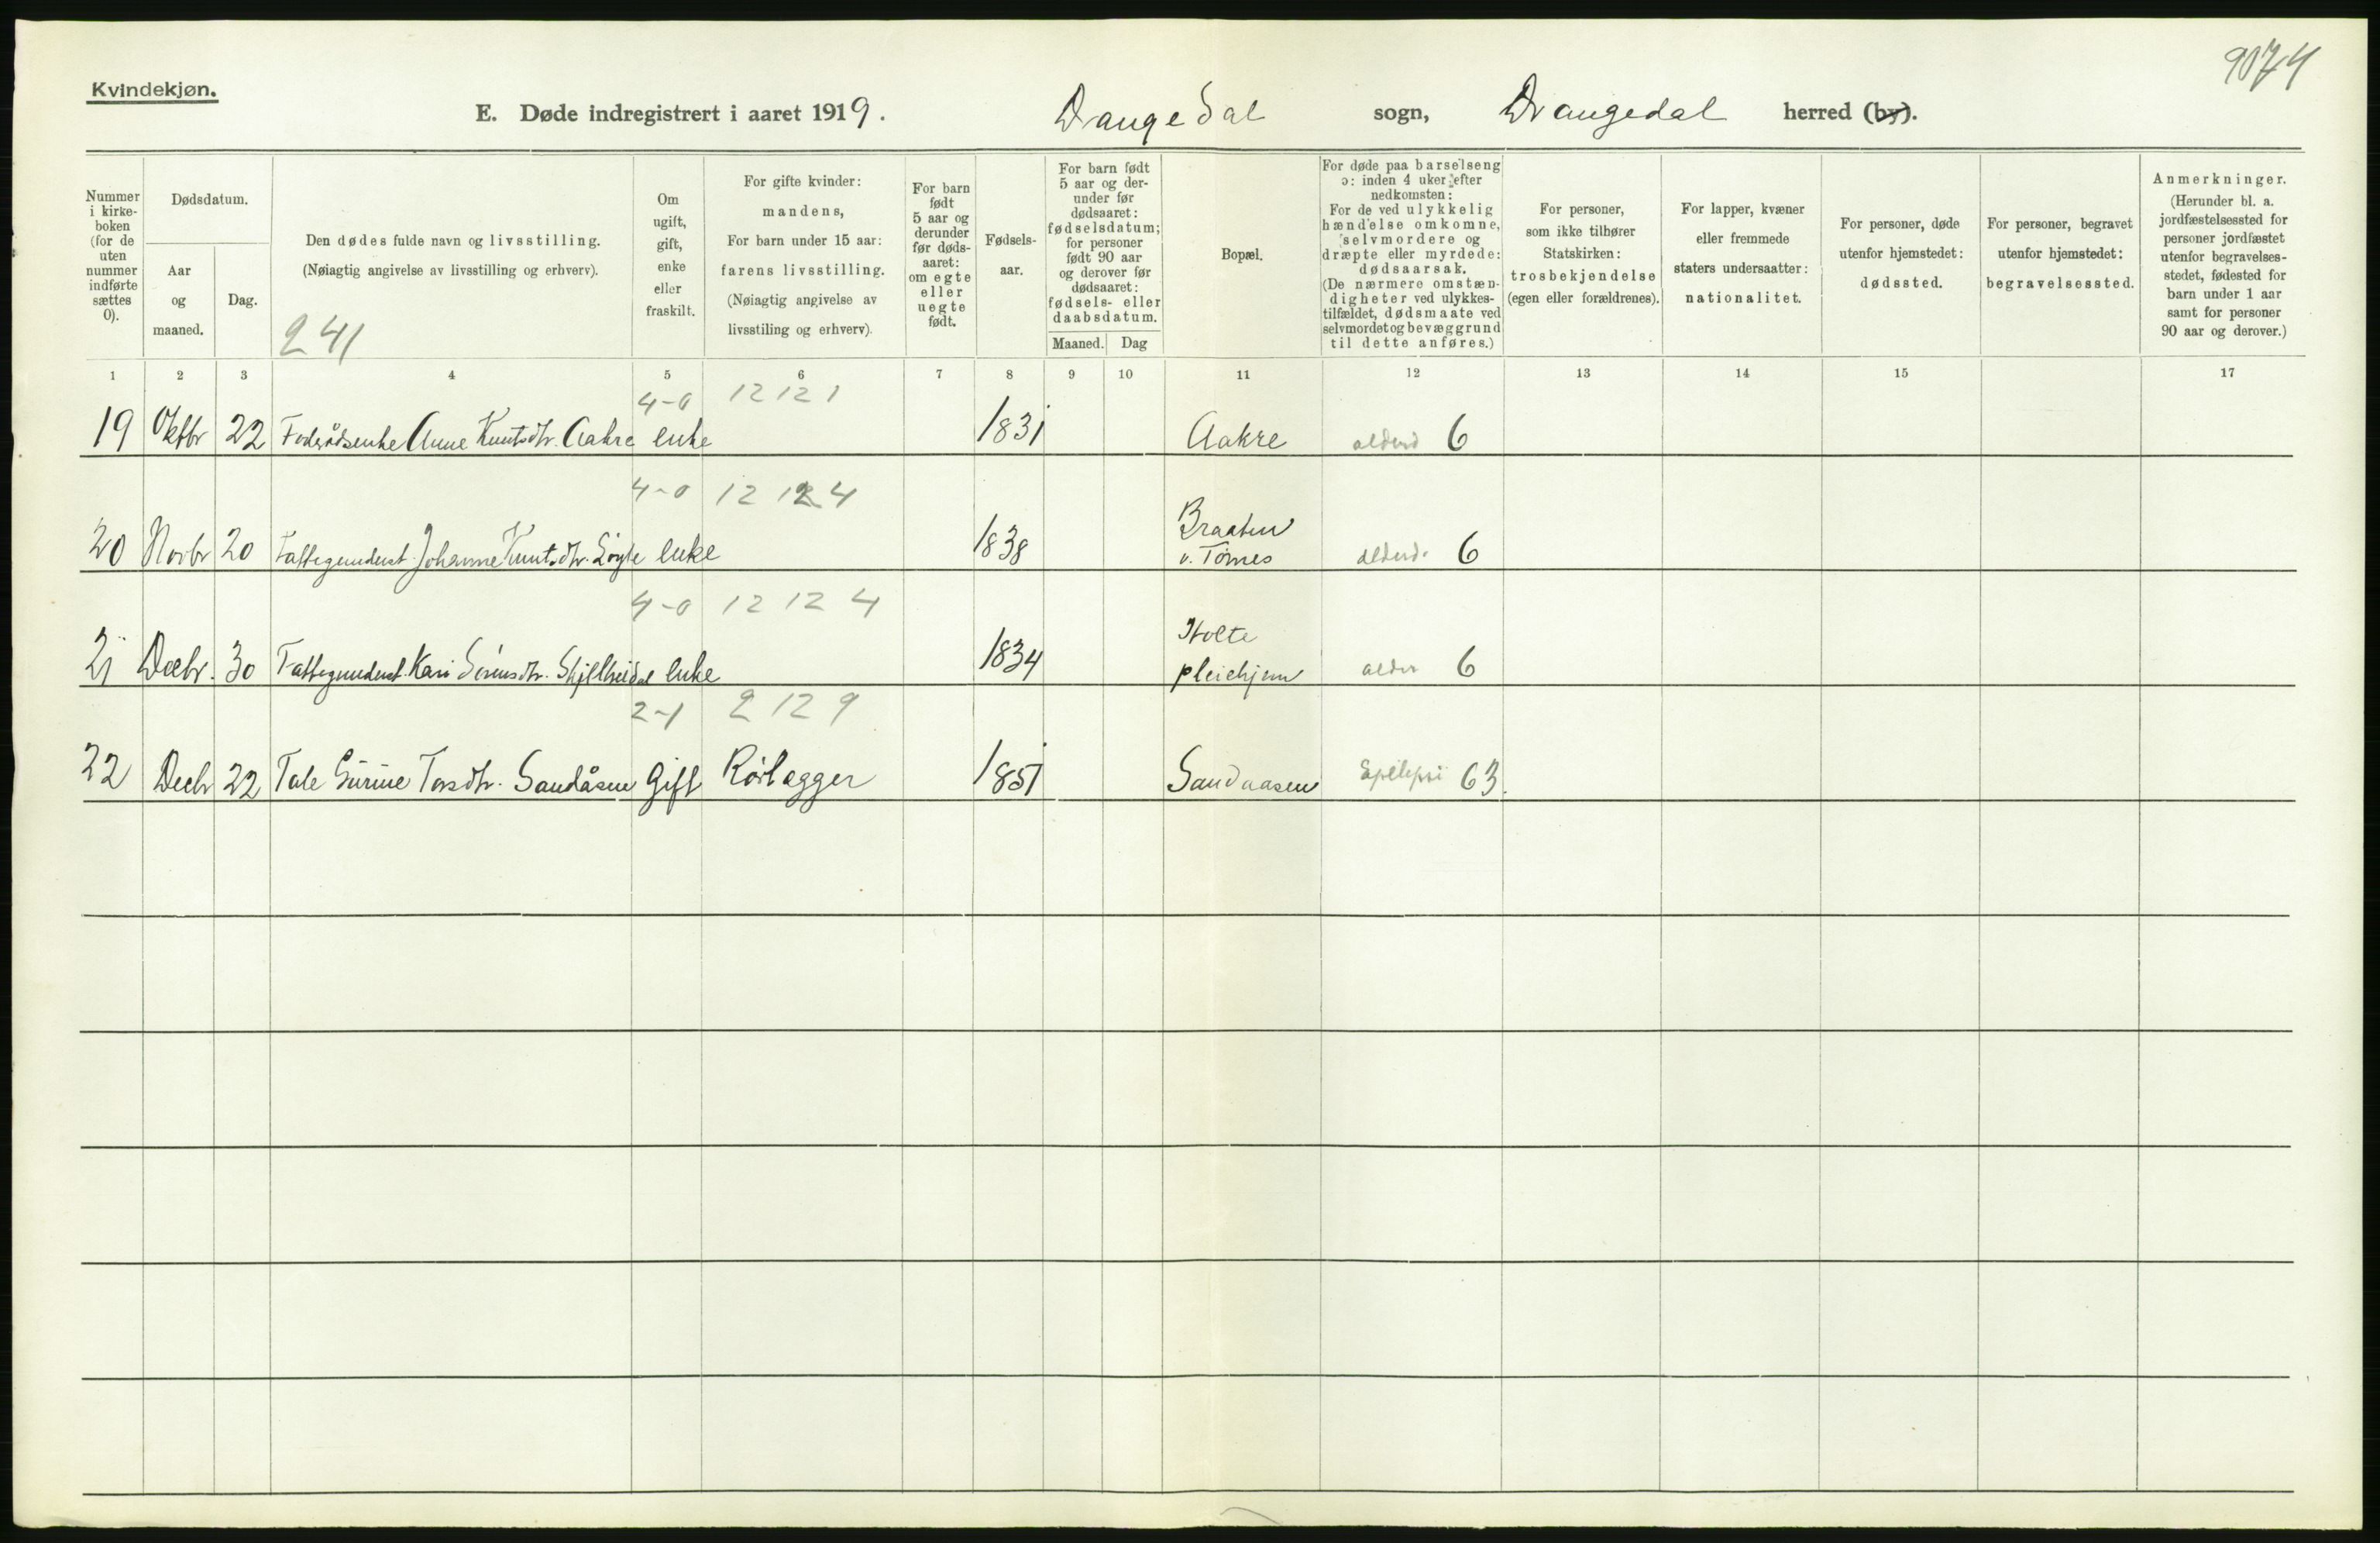 9074
Kvindekjøn.
E. Døde indregistrert i aaret 1919. Drangedal sogn, Drangedal herred (by).
Nummer i kirkeboken (for de uten nummer indførte sættes 0).
Dødsdatum.
Aar og maaned.
Dag.
Den dødes fulde navn og livsstilling.
(Nøiagtig angivelse av livsstilling og erhverv).
241
Om ugift, gift, enke eller fraskilt.
For gifte kvinder:
mandens,
For barn under 15 aar:
farens livsstilling.
(Nøiagtig angivelse av
livsstiling og erhverv).
For barn født 5 aar og derunder før dødsaaret: om egte eller uegte født.
Fødselsaar.
For barn født 5 aar og derunder før dødsaaret: fødselsdatum; for personer født 90 aar og derover før dødsaaret: fødsels- eller daabsdatum.
Maaned. Dag
Bopæl.
For døde paa barselseng ɔ: inden 4 uker efter nedkomsten:
For de ved ulykkelig hændelse omkomne, selvmordere og dræpte eller myrdede: dødsaarsak.
(De nærmere omstændigheter ved ulykkestilfældet, dødsmaate ved selvmordet og bevæggrund til dette anføres.)
For personer, som ikke tilhører Statskirken: trosbekjendelse (egen eller forældrenes).
For lapper, kvæner eller fremmede staters undersaatter: nationalitet.
For personer, døde utenfor hjemstedet: dødssted.
For personer, begravet utenfor hjemstedet: begravelsessted.
Anmerkninger.
(Herunder bl. a. jordfæstelsessted for personer jordfæstet utenfor begravelsesstedet, fødested for barn under 1 aar samt for personer 90 aar og derover.)
1 2 3 4 5 6 7 8 9 10 11 12 13 14 15 17
4-0 12 12 1
19 Oktbr 22 Foderådsenke Anne Knutsdtr. Aakre enke 1831 Aakre alderd 6
4-0 12 12 4
20 Novbr 20 Fattigunderst. Johanne Knutsdtr. enke 1838 Braaten v. Tørnes alderd. 6
4-0 12 12 4
21 Decbr. 30 Fattigunderst. Kari Sørensdtr. enke 1834 Holte pleiehjem alder 6
2-1 2 12 9
22 Decbr 22 Tale Gurine Torsdtr. Sandåsen Gift Rørlægger 1851 Sandaasen Epilepsi 63.